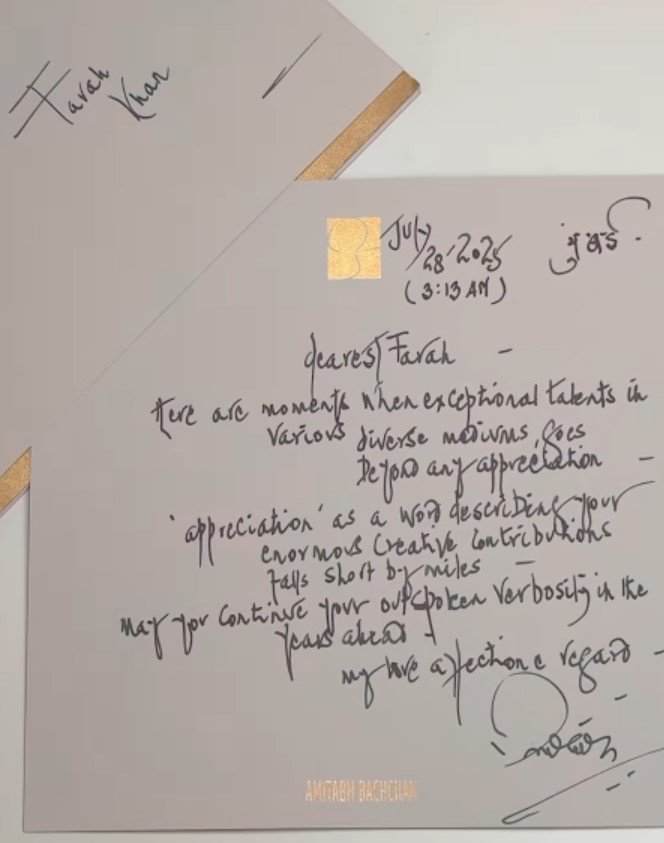 Farah
Khan
July
28-2025
मुंबई -
(3:13 AM)
dearest Farah -
there are moments when exceptional talents in
various diverse mediums, goes
beyond any appreciation -
'appreciation' as a word describing your
enormous creative contributions
falls short by miles -
may you continue your outspoken verbosity in the
years ahead -
my love affection e regard -
AMITABH BACHCHAN